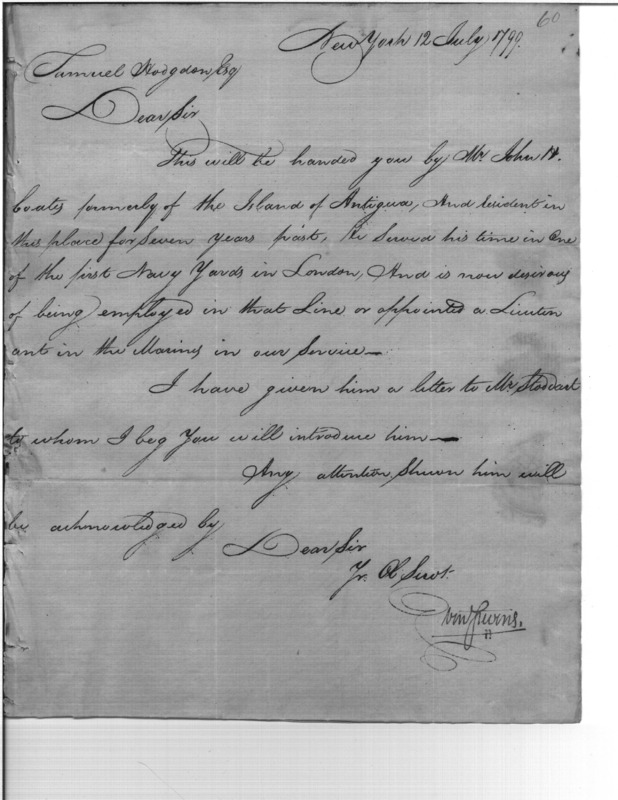 60
New York 12 July 1799.
Samuel Hodgdon, Esq
Dear Sir
This will be handed you by Mr. John H.
Coates formerly of the Island of Antigua, And resident in
this place for Seven years past, He Served his time in One
of the first Navy Yards in London, And is now desirous
of being employed in that Line or appointed a Lieuten
ant in the Marines in our Service—
I have given him a letter to Mr. Stoddart
to whom I beg You will introduce him—
Any attention Shewn him will
be acknowledged by
Dear Sir
Yr. Ob Servt.